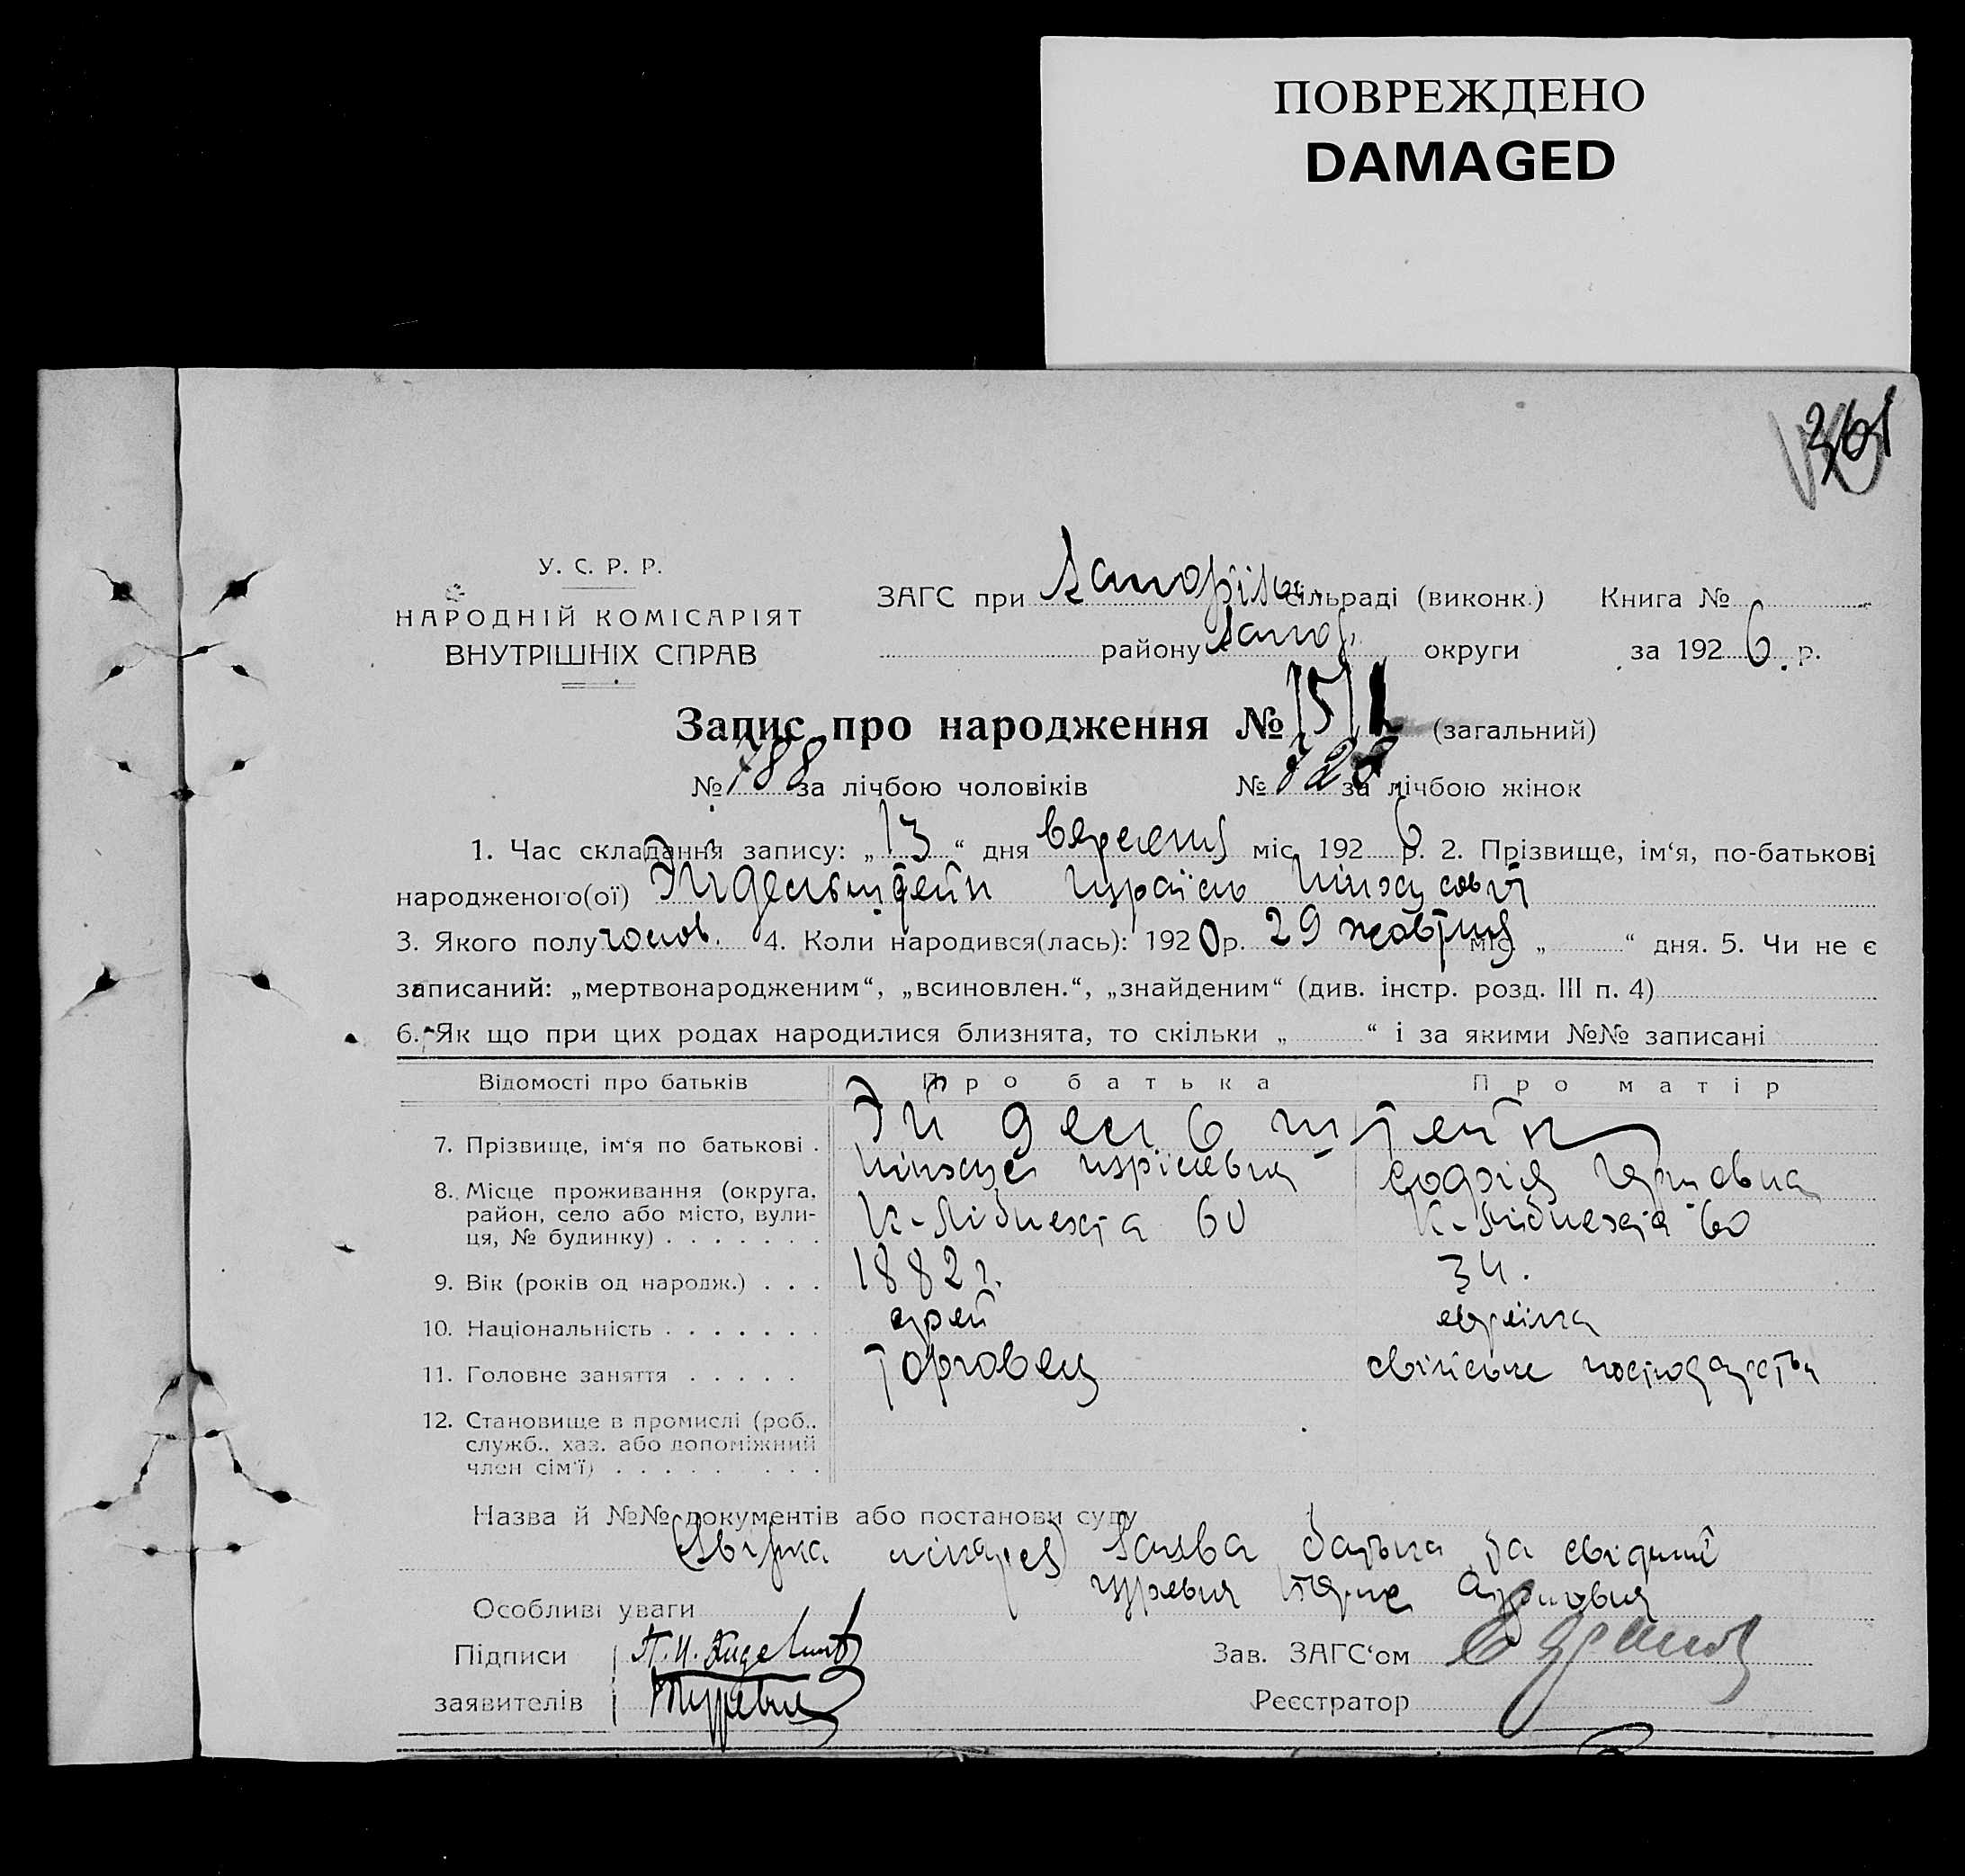 ПОВРЕЖДЕНО
DAMAGED
361
У. С. Р. Р.
НАРОДНІЙ КОМІСАРІЯТ
ВНУТРІШНІХ СПРАВ
ЗАГС при Запорізьк. сільраді (виконк.) Книга №
району Запор. округи за 192 6 р.
Запис про народження № (загальний)
№ 788 за лічбою чоловіків № за лічбою жінок
1. Час складання запису: „ 13 “ дня вересня міс. 192 6 р. 2. Прізвище, ім‘я, по-батькові
народженого(ої) Эйдельштейн Ізраїль Пінхусовч
3. Якого полу чолов. 4. Коли народився(лась): 192 0 р. 29 жовтня міс. „ “ дня. 5. Чи не є
записаний: „мертвонародженим“, „всиновлен.“, „знайденим“ (див. інстр. розд. III п. 4)
6. Як що при цих родах народилися близнята, то скільки „ “ і за якими №№ записані
Відомості про батьків Про батька Про матір
7. Прізвище, ім‘я по батькові . Эйдельштейн
Пінхус Софія
8. Місце проживання (округа,
район, село або місто, вули-
ця, № будинку) . . . . . . . К-Лібкнехта 60 К-Лібкнехта 60
9. Вік (років од народж.) . . . 1882 г. 34.
10. Національність . . . . . . . єврей єврейка
11. Головне заняття . . . . . торговец свійське господарство
12. Становище в промислі (роб..
служб., хаз. або допоміжний
член сім‘ї) . . . . . . . .
Назва й №№ документів або постанови суду
Довірка лікаря Заява батька та свідків
Особливі уваги
Підписи
заявителів
Зав. ЗАГС‘ом
Реєстратор